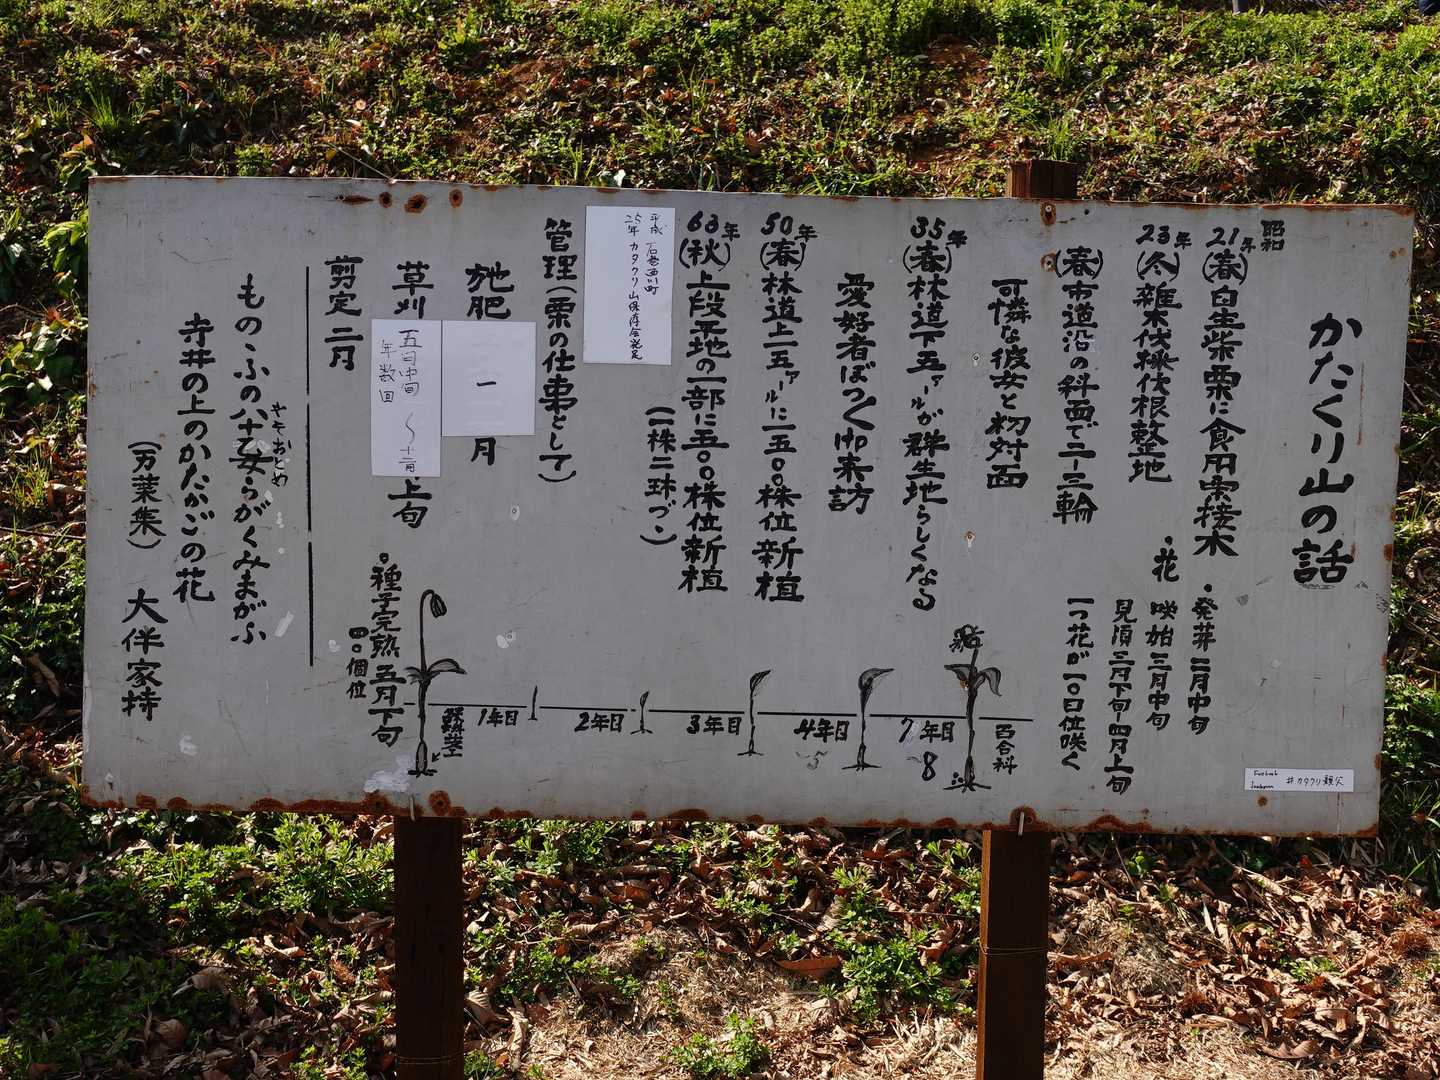 かたくり山の話
昭和
21年(春)自生柴栗に食用栗接木
23年(冬)雑木伐採伐根整地
(春)市道沿の斜面で二-三輪
可憐な彼女と初対面
35年(春)林道下五アールが群生地らしくなる
愛好者ぼつ〱御来訪
50年(春)林道上二五アールに二五〇株位新植
63年(秋)上段平地の一部に五〇〇株位新植
(一株二球づゝ)
平成 石巻西川町
25年 カタクリ山保存会発足
管理(栗の仕事として)
施肥 一月
草刈 五月中旬〜十二月上旬
年数回
剪定 二月
・発芽 二月中旬
・花 咲始 三月中旬
見頃 三月下旬-四月上旬
一つ花が一〇日位咲く
百合科
7年目
8
4年目
3年目
2年目
1年目
鱗茎
・種子完熟 五月下旬
四〇個位
ものゝふの八十乙女らがくみまがふ
やそおとめ
寺井の上のかたかごの花
(万葉集) 大伴家持
Facebook
#カタクリ親父